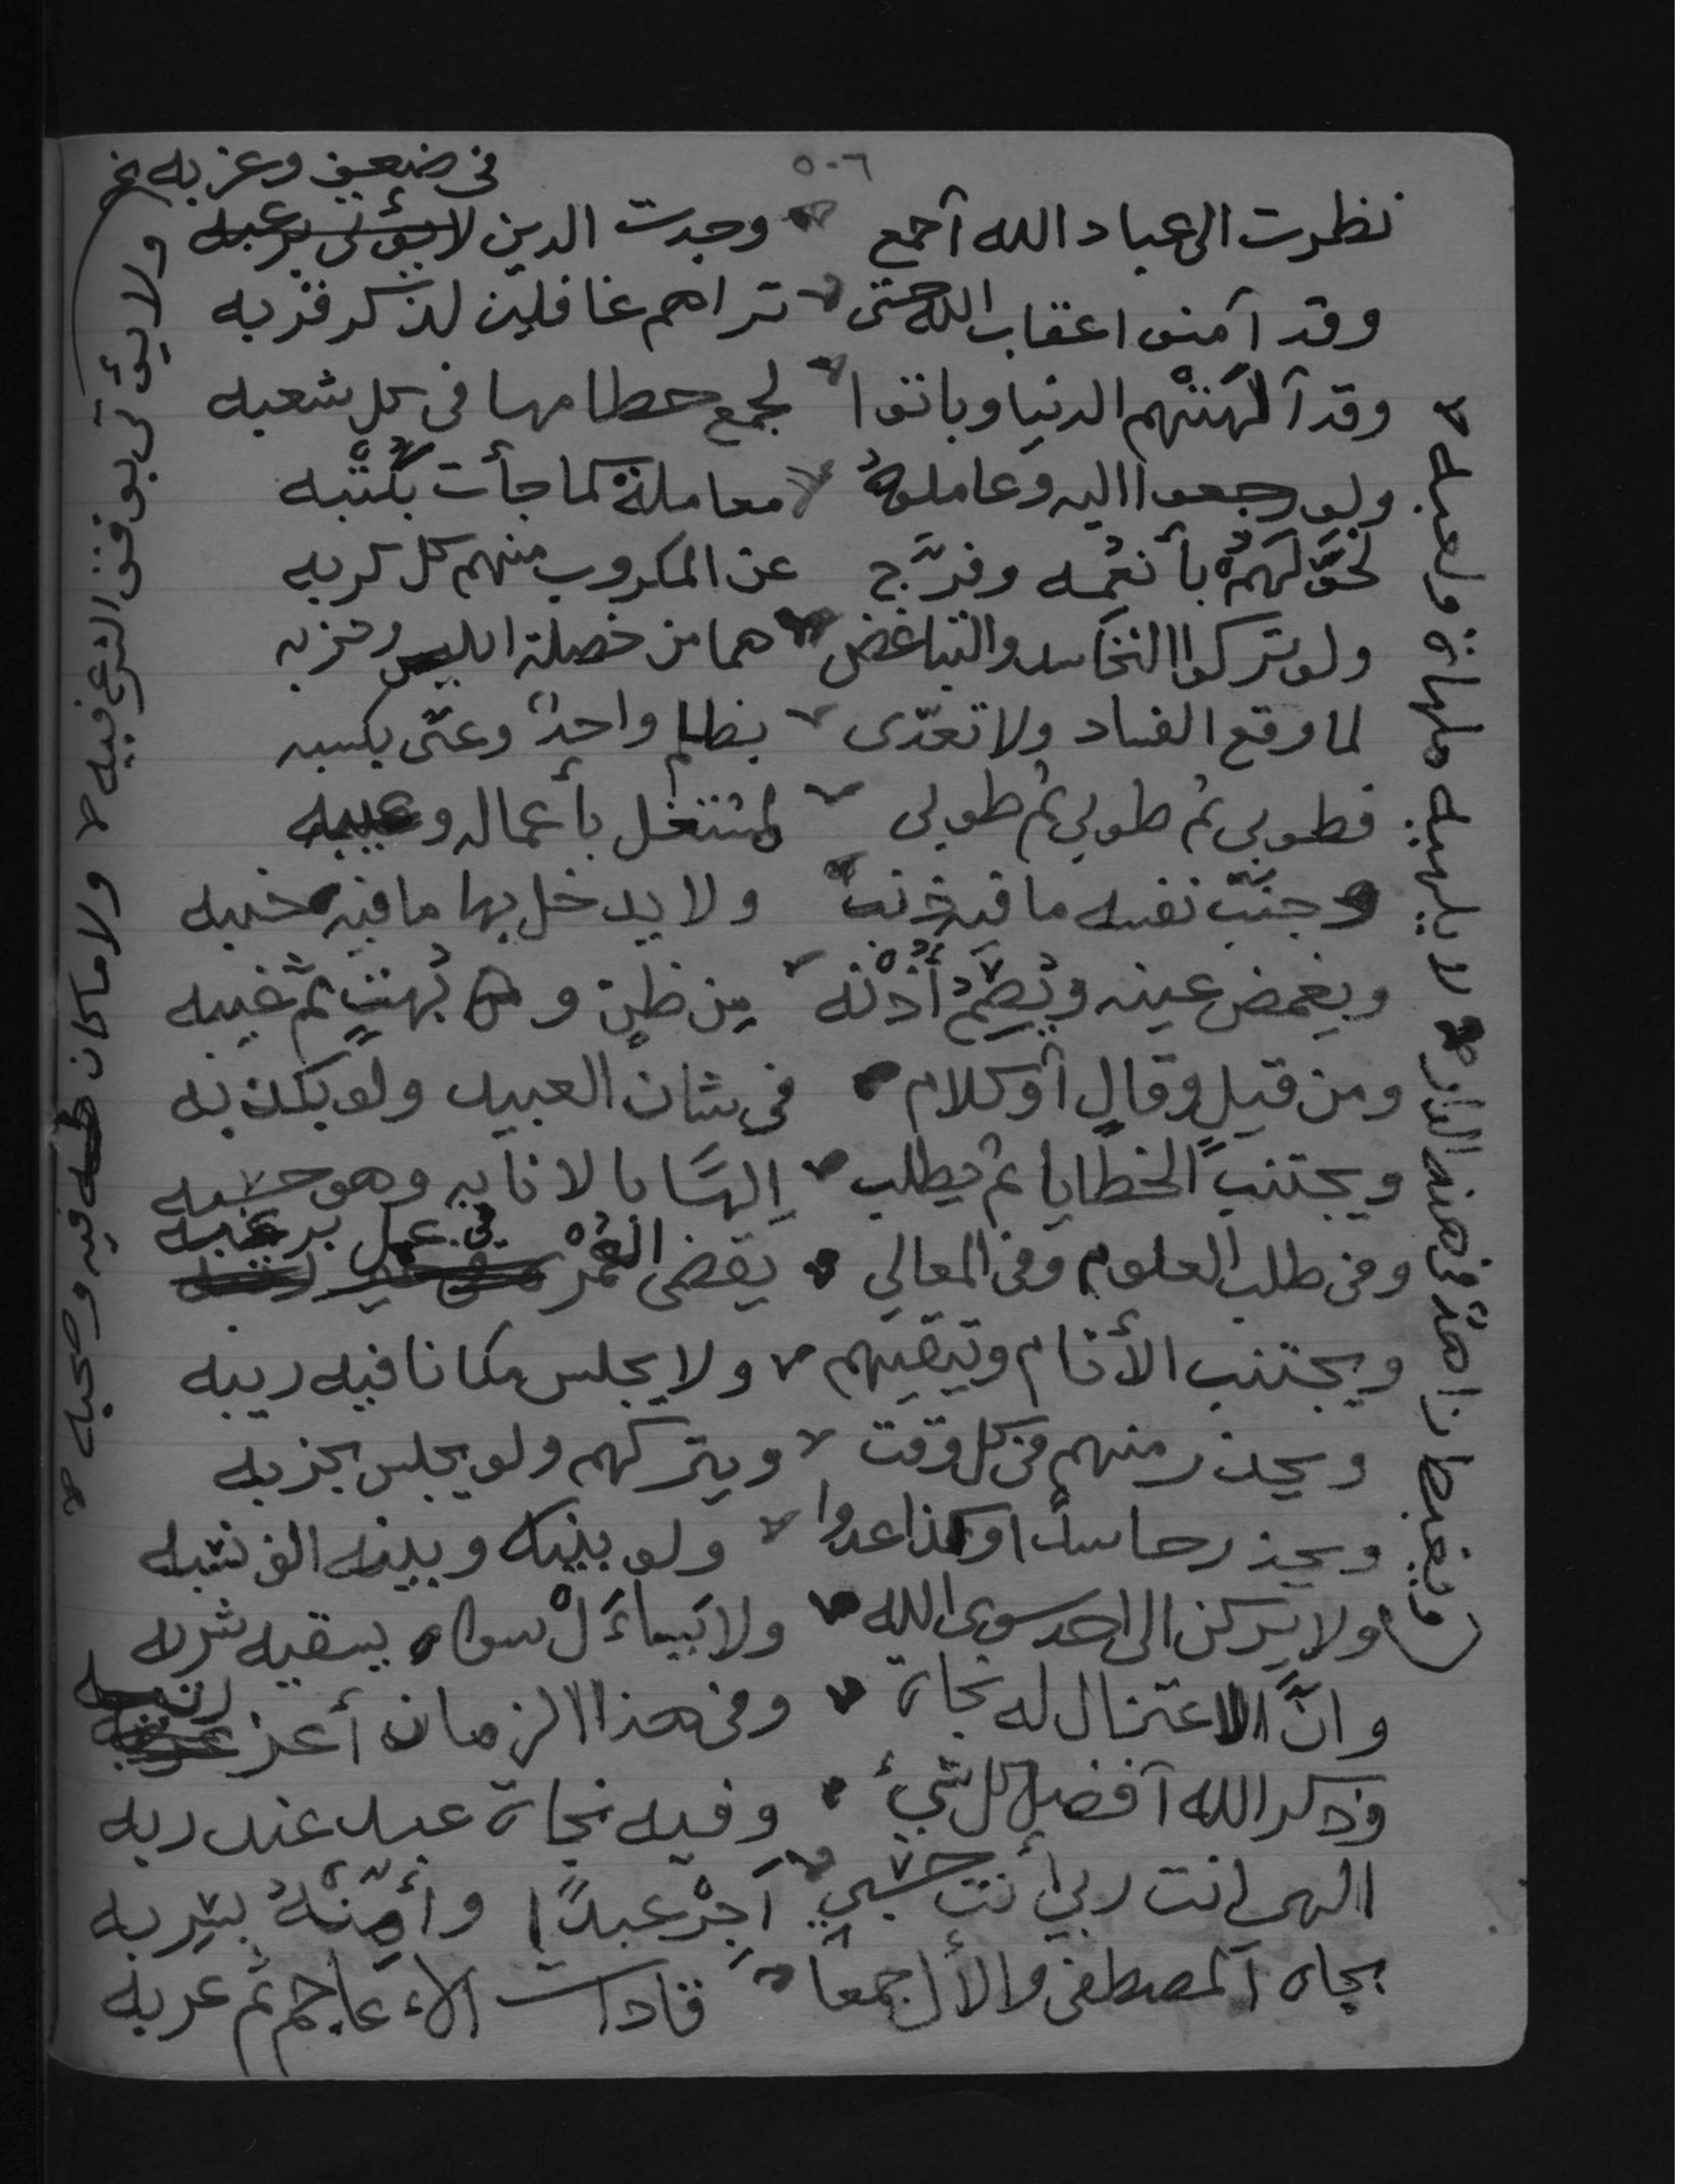 ٥٠٦
في ضعف وغربه نخ
نظرت الى عباد الله آجمع وجدت الدين لا يؤتى برغبه
وقد آمنوا عقاب الله حتى تراهم غافلين لذكر قربه
وقد آلهَتْهم الدنيا وباتوا لجمع حطامها في كل شعبه
ولو رجعوا اليه وعاملوهُ معاملة كما جأت بكُتْبه
لحَقَّ لَهُمُ بأنعُمه وفرَّج عن المكروب منهم كل كربه
ولو تركوا التحاسد والتباغض هما من خصلة ابليس وحزبه
لما وقع الفساد ولا تعدّى بظلم واحدٌ وعتى بكسبه
فطوبى ثم طوبى ثم طوبى لمشتغل بأعماله وعيبه
وجنّب نفسه ما فيه ذنبٌ ولا يدخل بها ما فيه خيبه
ويغمض عينه ويُصِمُّ أُذْنَه مِن ظنٍ و بُهتٍ ثم غيبه
ومن قيلٍ وقالٍ آو كلام في شان العبيد ولو بكذبه
ويجتنب الخطايا ثم يطلب اِلهًا بالانابه وهو حسبه
وفي طلب العلوم وفي المعالي يقضى العُمْر في عمل برغبه
ويجتنب الأنام ويتقيهم ولا يجلس مكانا فيه ريبه
ويحذر منهم في كل وقت ويتركهم ولو يجلس بخربه
ويحذر حاسدًا او كذا عدوا ولو بينه وبينه الف نسبه
ولا يركن الى احد سوى الله ولا يَساءَلْ سواه يسقيه شربه
وانَّ الاعتزال له نجاة وفي هذا الزمان أعز
وذكر الله آفضل كل شيءٍ وفيه نجاة عبد عند ربه
الهي انت ربي أنت حسبي آجِرْ عبدًا وأمِّنْهُ بسربه
بجاه آلمصطفى والأل جمعًا قادات الاءعاجم ثم عربه
ويغبط ان احدٌ في هذه الدار يلهيه ملهاة ولعبه
ولا يؤتى بوفق الشرع فيه ولا ما كان طه فيه وصحبه